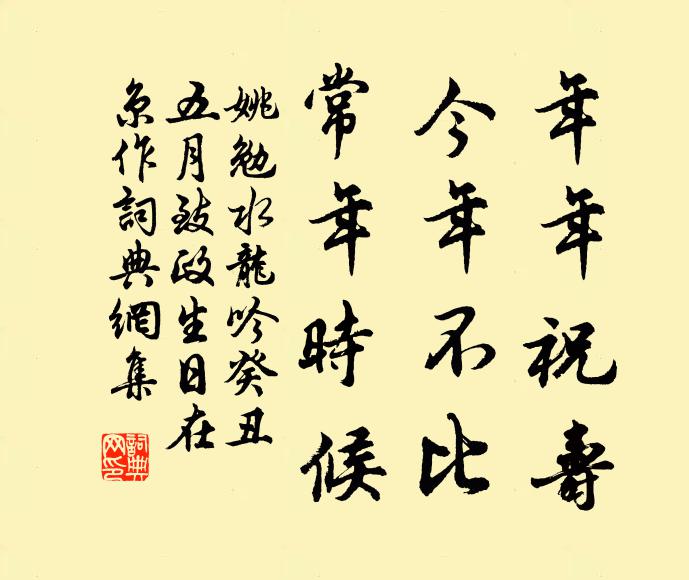 年年祝壽
今年不比
常年時候
姚勉水龍吟癸丑
五月致政生日在
京作詞典網集
詞典網印